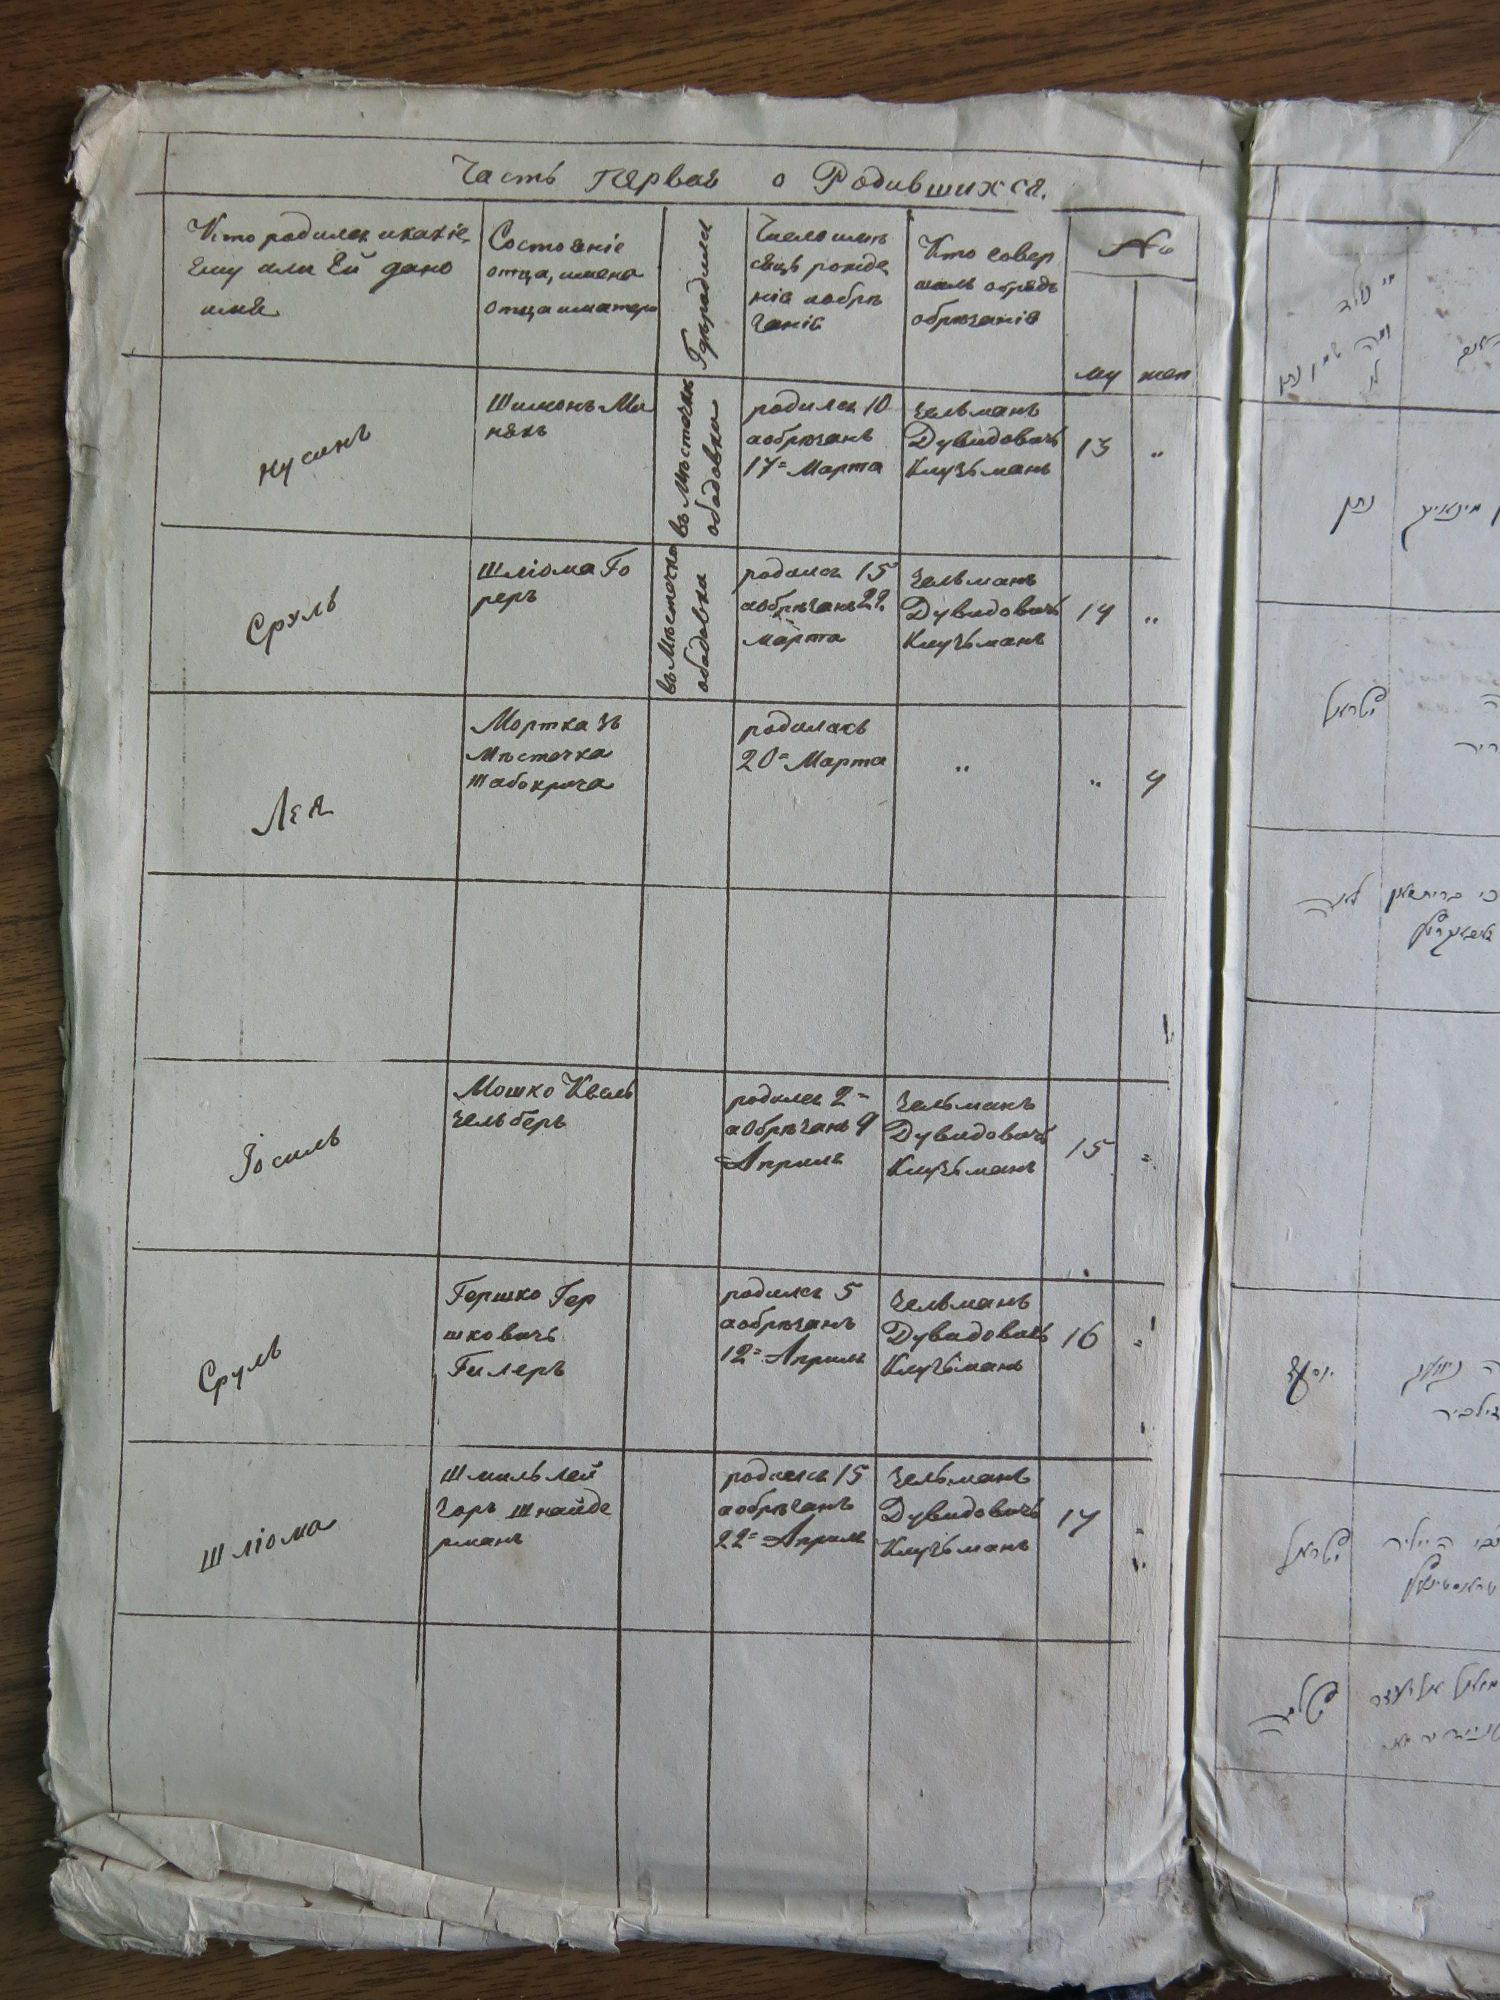 Часть первая о Родившихся.
Кто родился и какіе
ему или Ей дано
имя
Состояніе
отца, имена
отца и матери
Гдѣ родился
Число и мѣ
сяцъ рожде
нія и обрѣ
занія
Кто совер
шалъ обрядъ
обрѣзанія
№
му
жен
Нусинъ
Шимонъ Ми
някъ
въ Мѣстечкѣ
ободовки
родился 10
а обрѣзанъ
17 = Марта
Зельманъ
Дувидовичъ
Клузьманъ
13
"
Сруль
Шліома Го
реръ
въ Мѣстечка
ободовка
родился 15
а обрѣзанъ 22.
марта
Зельманъ
Дувидовичъ
Клузьманъ
14
"
Лея
Мортка зъ
Мѣстечка
родилась
20 = Марта
"
"
4
Іосиль
Мошко Кваль
зельберъ
родился 2 =
а обрѣзанъ 9
Апрѣля
Зельманъ
Дувидовичъ
Клузьманъ
15
=
Сруль
Гершко Гер
шковичъ
Гилеръ
родился 5
а обрѣзанъ
12 = Апрѣля
Зельманъ
Дувидовичъ
Клузьманъ
16
=
Шліома
Шмиль Лей
зоръ Шнайде
рманъ
родился 15
а обрѣзанъ
22 = Апрѣля
Зельманъ
Дувидовичъ
Клузьманъ
17
=
נתן
ישראל
לאה
ישראל
שלמה